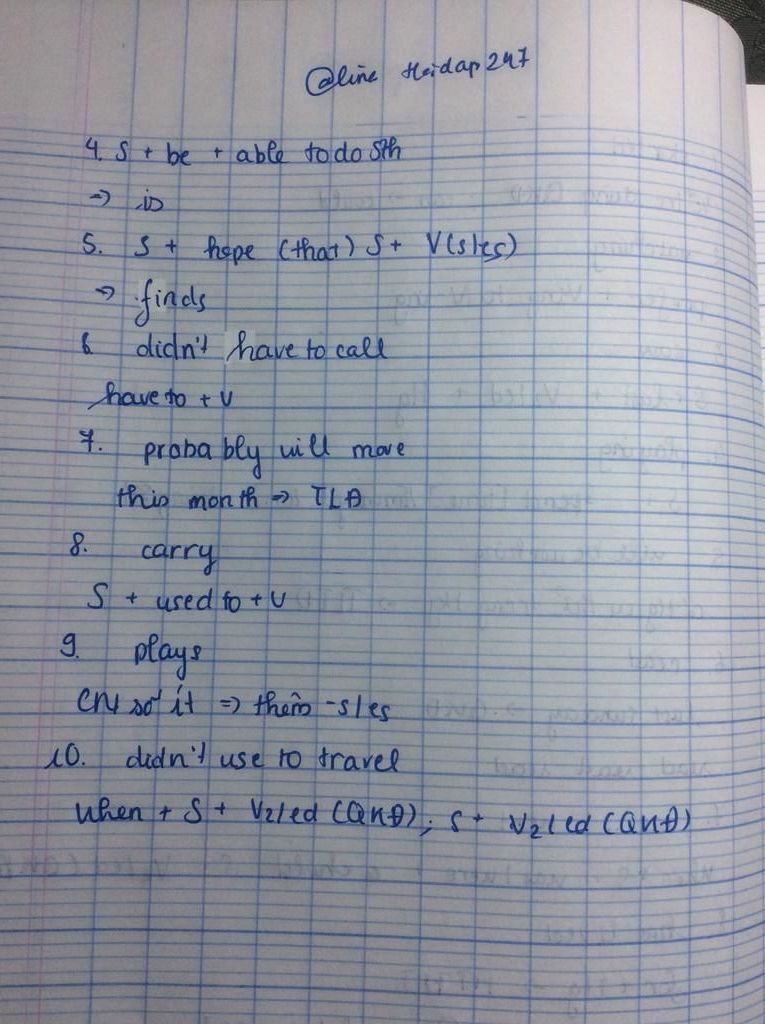 @line Heidap247
4. S + be + able to do sth
=> is
5. S + hope (that) S + V(s/es)
=> finds
6 didn't have to call
have to + V
7. probably will move
this month => TLĐ
8. carry
S + used to + V
9. plays
CN số ít => thêm -s/es
10. didn't use to travel
when + S + V2/ed (QKĐ), S + V2/ed (QKĐ)